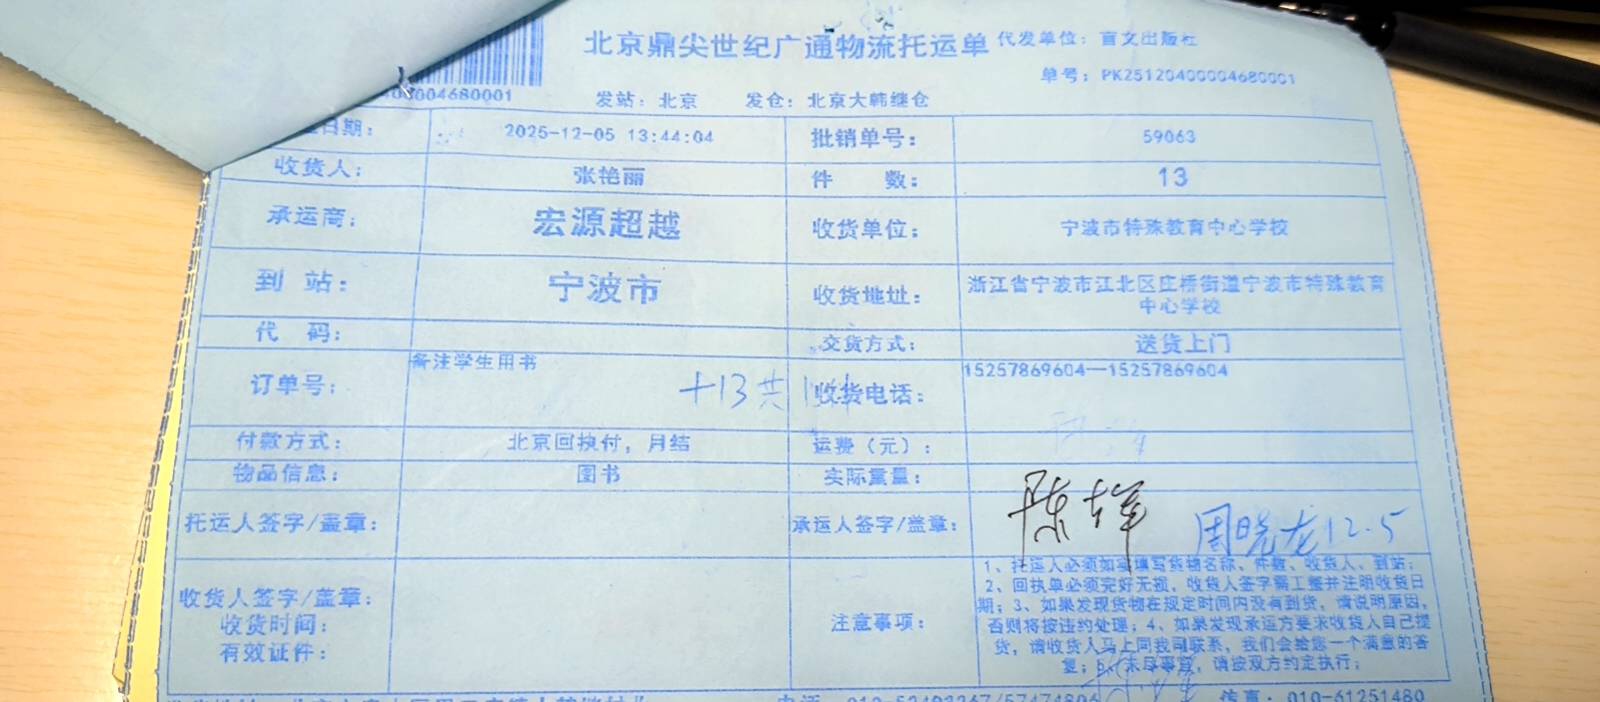 北京鼎尖世纪广通物流托运单 代发单位：盲文出版社
单号：PK25120400004680001
00004680001 发站：北京 发仓：北京大韩继仓
日期： 2025-12-05 13:44:04 批销单号： 59063
收货人： 张艳丽 件 数： 13
承运商： 宏源超越 收货单位： 宁波市特殊教育中心学校
到 站： 宁波市 收货地址： 浙江省宁波市江北区庄桥街道宁波市特殊教育
中心学校
代 码： 交货方式： 送货上门
订单号： 备注学生用书 +13共 收货电话： 15257869604—15257869604
付款方式： 北京回执付，月结 运费（元）：
物品信息： 图书 实际重量：
托运人签字/盖章： 承运人签字/盖章： 周晓龙12.5
收货人签字/盖章：
收货时间：
有效证件：
注意事项：
1、托运人必须如实填写货物名称、件数、收货人、到站；
2、回执单必须完好无损，收货人签字需工整并注明收货日
期；3、如果发现货物在规定时间内没有到货，请说明原因，
否则将按违约处理；4、如果发现承运方要求收货人自己提
货，请收货人马上同我司联系，我们会给您一个满意的答
复；5、未尽事宜，请按双方约定执行；
传真：010-61251480